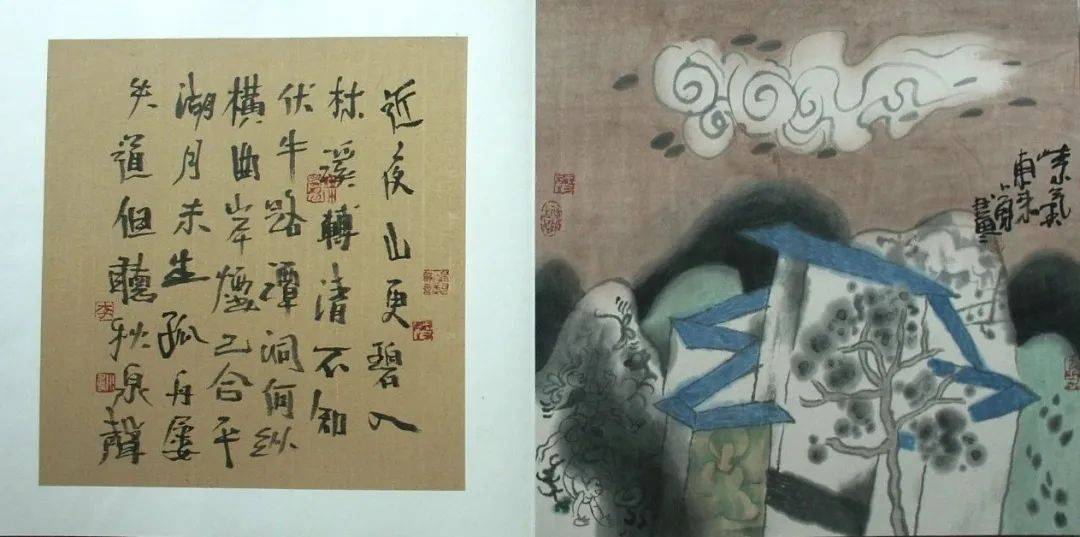 近夜山更碧入
林溪轉清不知
伏牛路潭洞何纵
橫曲岸煙已合平
湖月未生孤舟屢
失道但聽秋泉聲
紫氣
東来
畫